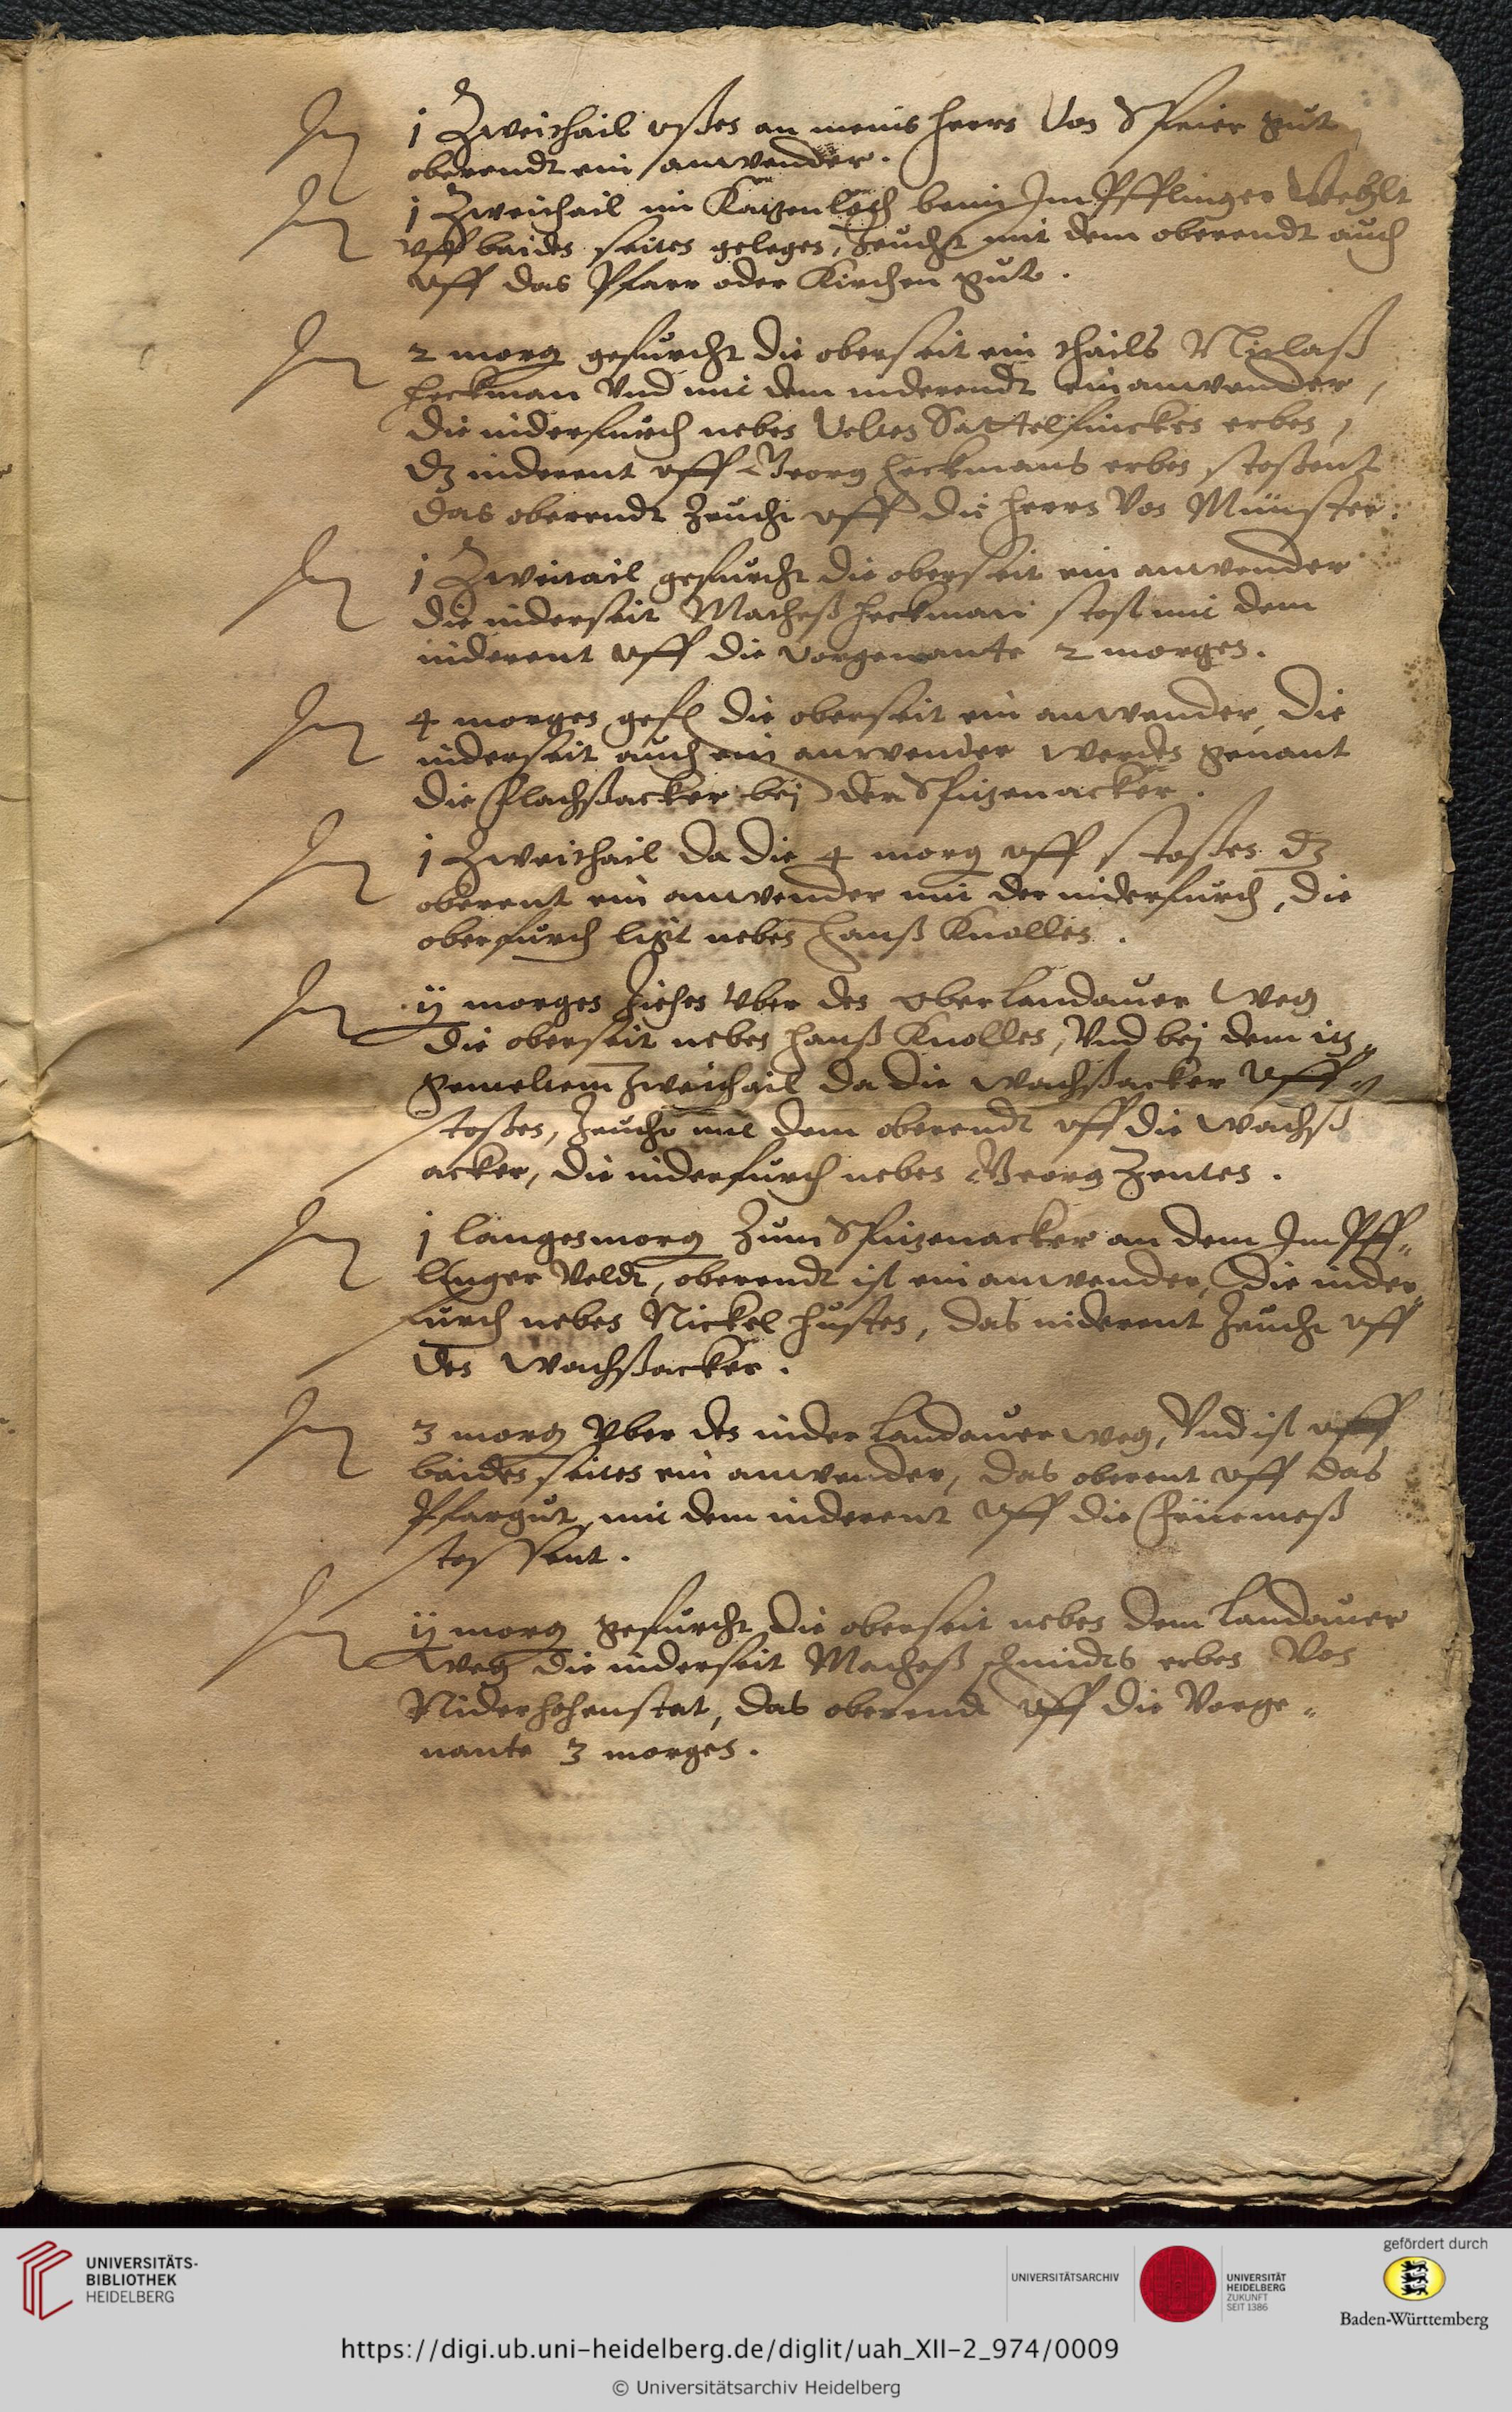 Jtem 1 Zweithail ußen an meins herrn von Speier gut
oberendt ein anwender.
Jtem 1 Zweithail im Katzenloch beim Jmpfflinger
uff baiden seiten gelegen, Zeucht mit dem oberendt auch
uff das Pfarr oder Kirchen gut.
Jtem 2 morg gefurcht die oberseit ein thails Niclaß
Heckman Vnd mit dem niderendt ein anwender,
die niderfurch neben Velten Sattelfinckes erben,
dz niderent uff Georg Heckmans erben stoßent
das oberendt Zeucht uff die herrn Von Münster.
Jtem 1 Zweitail gefurcht die oberseit ein anwender
die niderseit Matheß Heckman stost mit dem
niderent uff die vorgenante 2 morgen.
Jtem 4 morgen gef. die oberseit ein anwender, die
niderseit auch ein anwender werden genant
die flachßacker bej der Spitzenacker.
Jtem 1 Zweithail da die 4 morg uff stoßen dz
oberent ein anwender mit der niderfurch, die
oberfurch ligt neben Hanß Knollen.
Jtem ij morgen Ziehen Vber den oberlandauer weg
die oberseit neben Hanß Knollen, Vnd bej dem itz„
gemeltem Zweithail da die wachßacker uff
stoßen, Zeucht mit dem oberendt uff die wachß
acker, die niderfurch neben Georg Zenten.
Jtem 1 langesmorg Zum Spitzenacker an dem Jmpff„
linger Veldt, oberendt ist ein anwender, die nider„
furch neben Nickel Husten, das niderent Zeucht uff
den wachßacker.
Jtem 3 morg Vber den nider Landauer weg, Vnd ist uff
baiden seiten ein anwender, das oberent uff das
Pfargut, mit dem niderent uff die früemeß
stossent.
Jtem ij morg gefurcht die oberseit neben dem Landauer
weg die niderseit Matheß schmidts erben Von
Niderhohenstat, das oberendt uff die Vorge„
nante 3 morgen.
UNIVERSITÄTS-
BIBLIOTHEK
HEIDELBERG
UNIVERSITÄTSARCHIV
UNIVERSITÄT
HEIDELBERG
ZUKUNFT
SEIT 1386
gefördert durch
Baden-Württemberg
https://digi.ub.uni-heidelberg.de/diglit/uah_XII-2_974/0009
© Universitätsarchiv Heidelberg